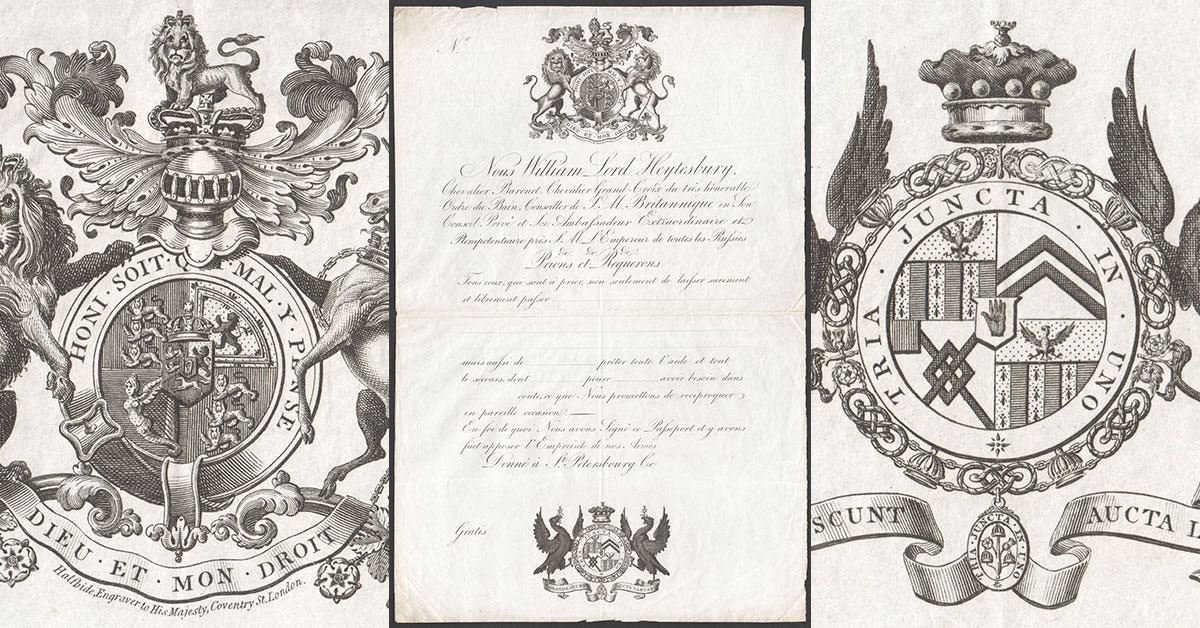 HONI · SOIT · QUI · MAL · Y · PENSE
DIEU · ET · MON · DROIT
Halfhide, Engraver to His Majesty, Coventry St. London.
N.º
DIEU ET MON DROIT
Nous William Lord Heytesbury,
Chevalier Baronet, Chevalier Grand-Croix du très honorable
Ordre du Bain, Conseiller de S. M. Britannique en Son
Conseil Privé et Son Ambassadeur Extraordinaire et
Plenipotentiaire près S. M. L'Empereur de toutes les Russies
&c &c &c
Prions et Requerons
Tous ceux, qui sont à prier, non seulement de laisser surement
et librement passer
mais aussi de prêter toute l'aide et tout
le secours, dont pour avoir besoin dans
route, ce que Nous promettons de reciproquer
en pareille occasion.
En foi de quoi Nous avons Signé ce Passeport et y avons
fait apposer l'Empreinte de nos Armes
Donné à St. Pétersbourg Ce
Gratis
TRIA · JUNCTA · IN · UNO
SCUNT
AUCTA L
TRIA JUNCTA IN UNO